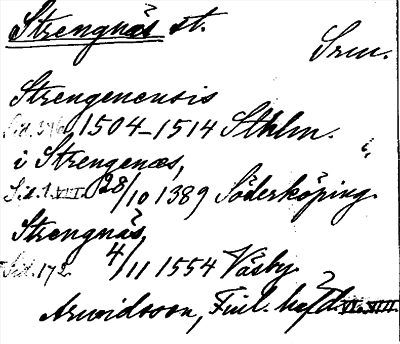 Strengnäs st.
Srm.
Strengenensis
1504-1514 Sthlm.
i Strengenæs,
28/10 1389 Söderköping.
Strengnäs,
Sid. 172. 4/11 1554 Väsby
Arwidsson, Finl. häfd. VI. VIII.